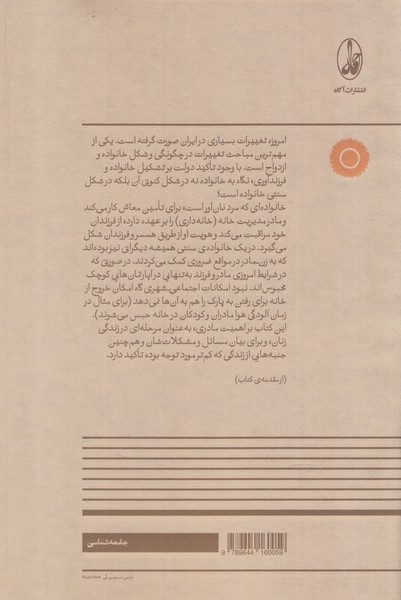 انتشارات آگاه
امروزه تغییرات بسیاری در ایران صورت گرفته است. یکی از
مهم‌ترین مباحث تغییرات در چگونگی و شکل خانواده و
ازدواج است. با وجود تأکید دولت بر تشکیل خانواده و
فرزندآوری، نگاه به خانواده نه در شکل کنونی آن بلکه در شکل
سنتی خانواده است؛
خانواده‌ای که مرد نان‌آور است، برای تأمین معاش کار می‌کند
و مادر مدیریت خانه (خانه‌داری) را بر عهده دارد؛ از فرزندان
خود مراقبت می‌کند و هویت او از طریق همسر و فرزندان شکل
می‌گیرد. در یک خانواده‌ی سنتی همیشه دیگرانی نیز بوده‌اند
که به زن‌ـ‌مادر در مواقع ضروری کمک می‌کردند. در صورتی که
در شرایط امروزی مادر و فرزند به‌تنهایی در آپارتمان‌هایی کوچک
محبوس‌اند. نبود امکانات اجتماعی‌ـ‌شهری گاه امکان خروج از
خانه برای رفتن به پارک را هم به آن‌ها نمی‌دهد (برای مثال در
زمان آلودگی هوا مادران و کودکان در خانه حبس می‌شوند).
این کتاب بر اهمیت مادری، به‌عنوان مرحله‌ای در زندگی
زنان، و برای بیان مسائل و مشکلات‌شان و هم‌چنین
جنبه‌هایی از زندگی که کم‌تر مورد توجه بوده تأکید دارد.
(از مقدمه‌ی کتاب)
جامعه‌شناسی
9 789644 160059